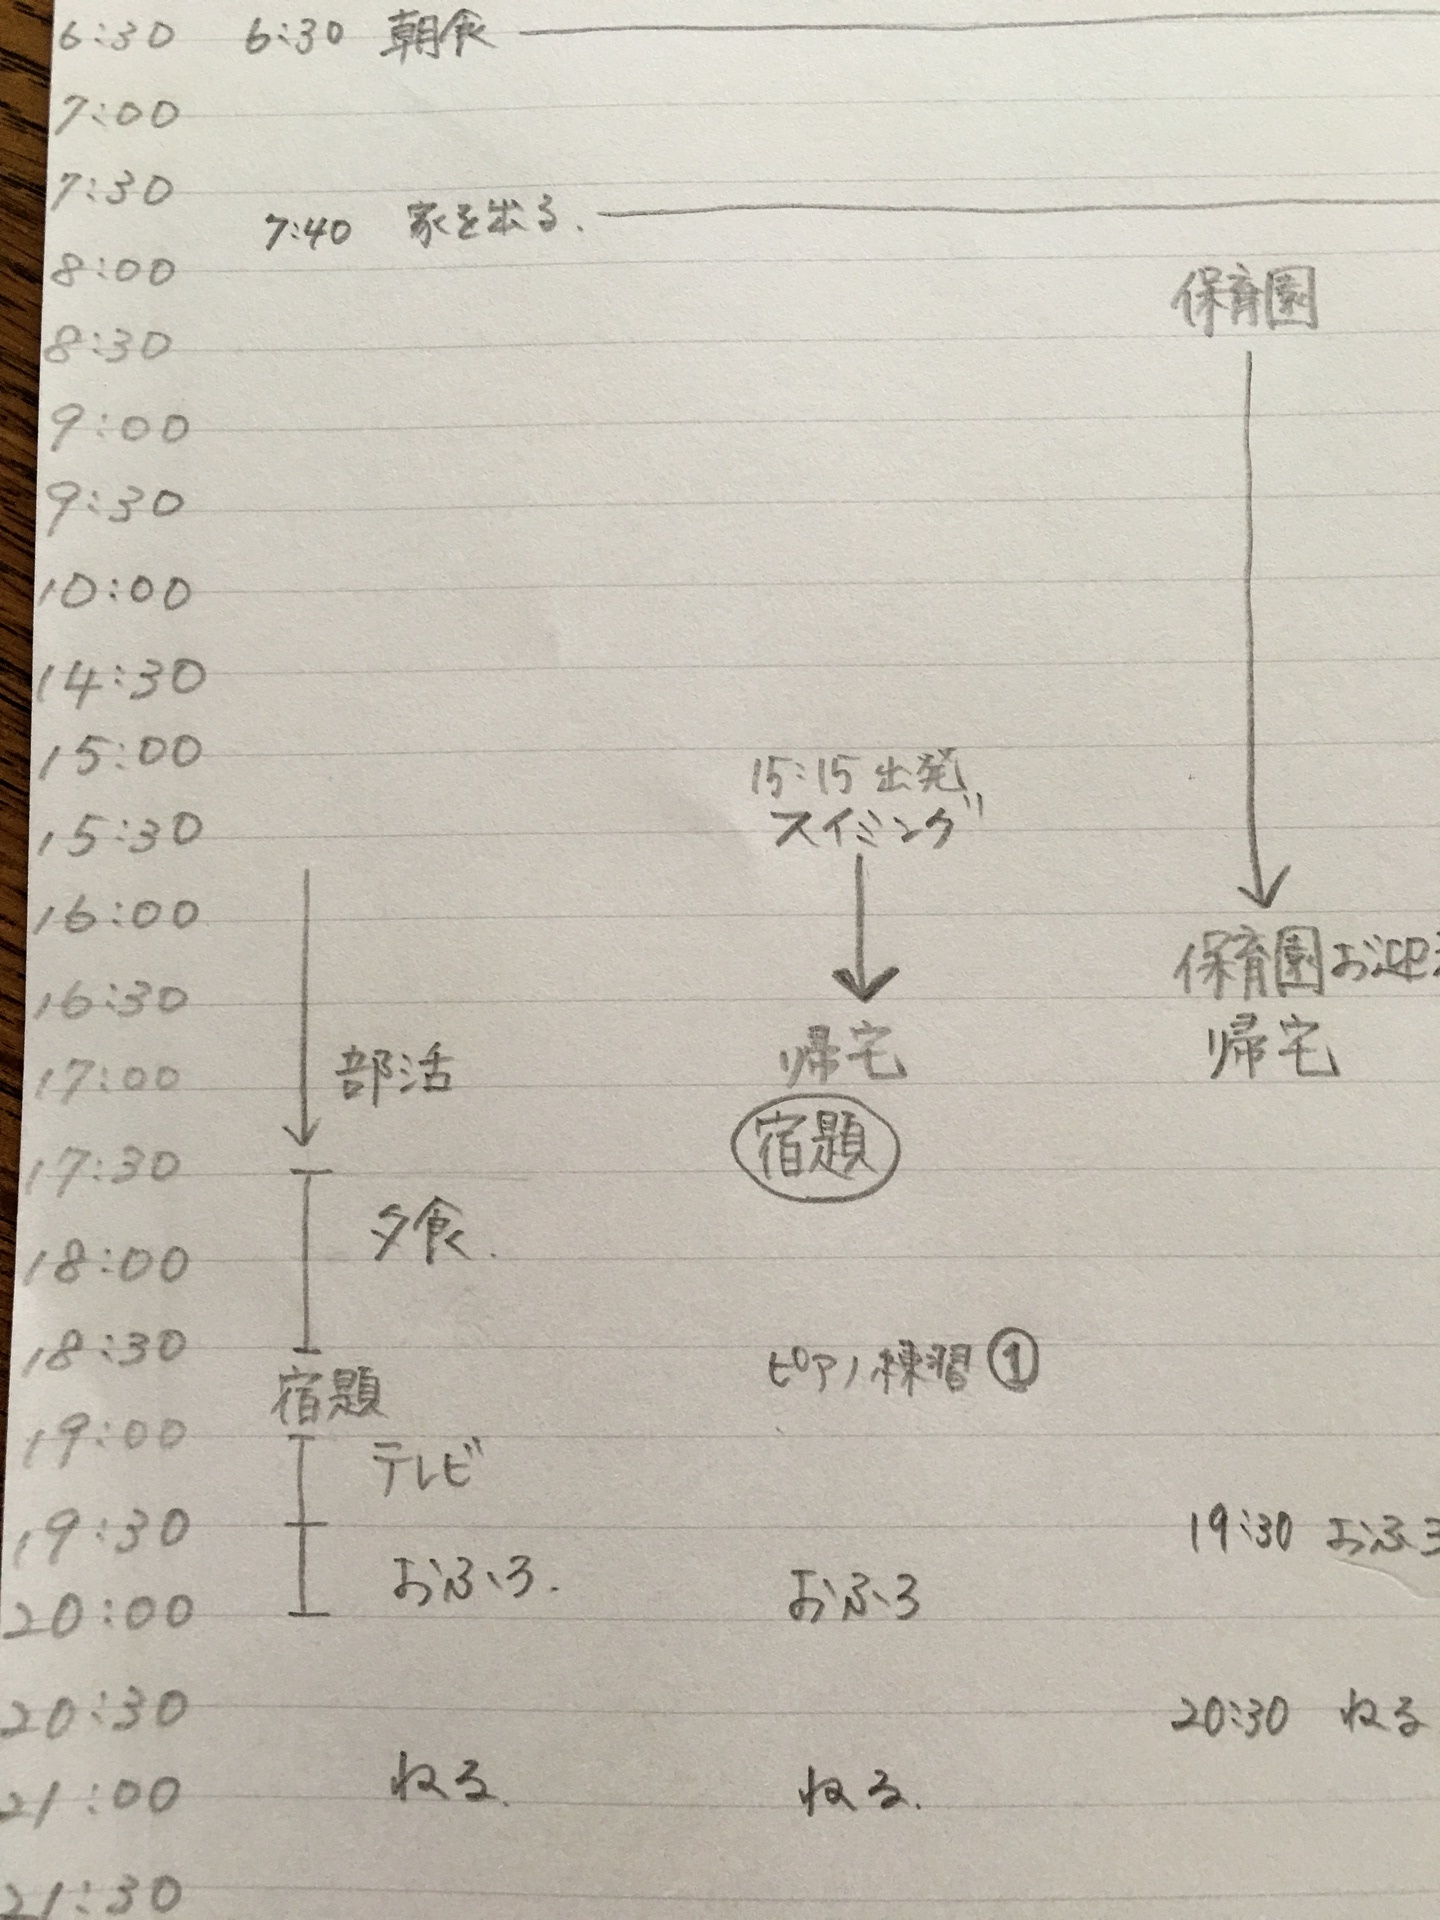 6:30 6:30 朝食
7:00
7:30
7:40 家を出る.
8:00 保育園
8:30
9:00
9:30
10:00
14:30
15:00
15:15 出発
15:30 スイミング
16:00
保育園お迎
16:30
帰宅 帰宅
17:00 部活
宿題
17:30
夕食.
18:00
18:30 ピアノ練習①
宿題
19:00
テレビ
19:30 19:30 おふろ
おふろ. おふろ
20:00
20:30 20:30 ねる
21:00 ねる. ねる.
21:30